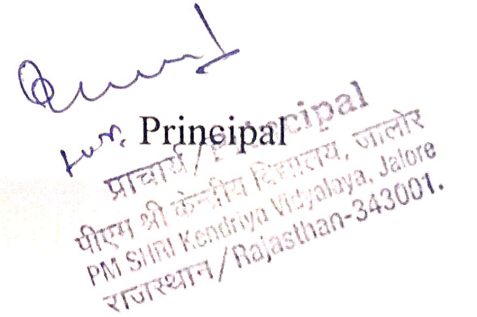 Principal
प्राचार्य/Principal
पीएम श्री केन्द्रीय विद्यालय, जालोर
PM SHRI Kendriya Vidyalaya, Jalore
राजस्थान/Rajasthan-343001.